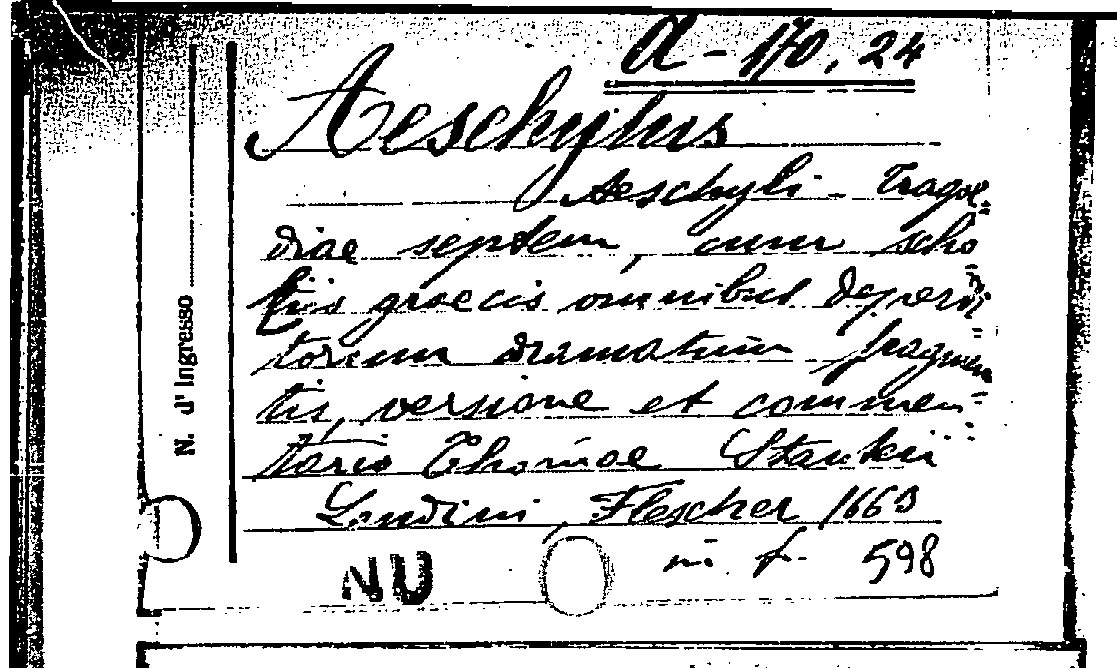 A - 170, 24
Aeschylus
Aeschyli - Tragoe-
diae septem, cum scho
liis graecis omnibus deperdi-
torum dramatum fragmen-
tis, versione et commen-
tario Thomae Stanleii
Londini, Flescher 1663
in f. 598
NU
N. d' Ingresso